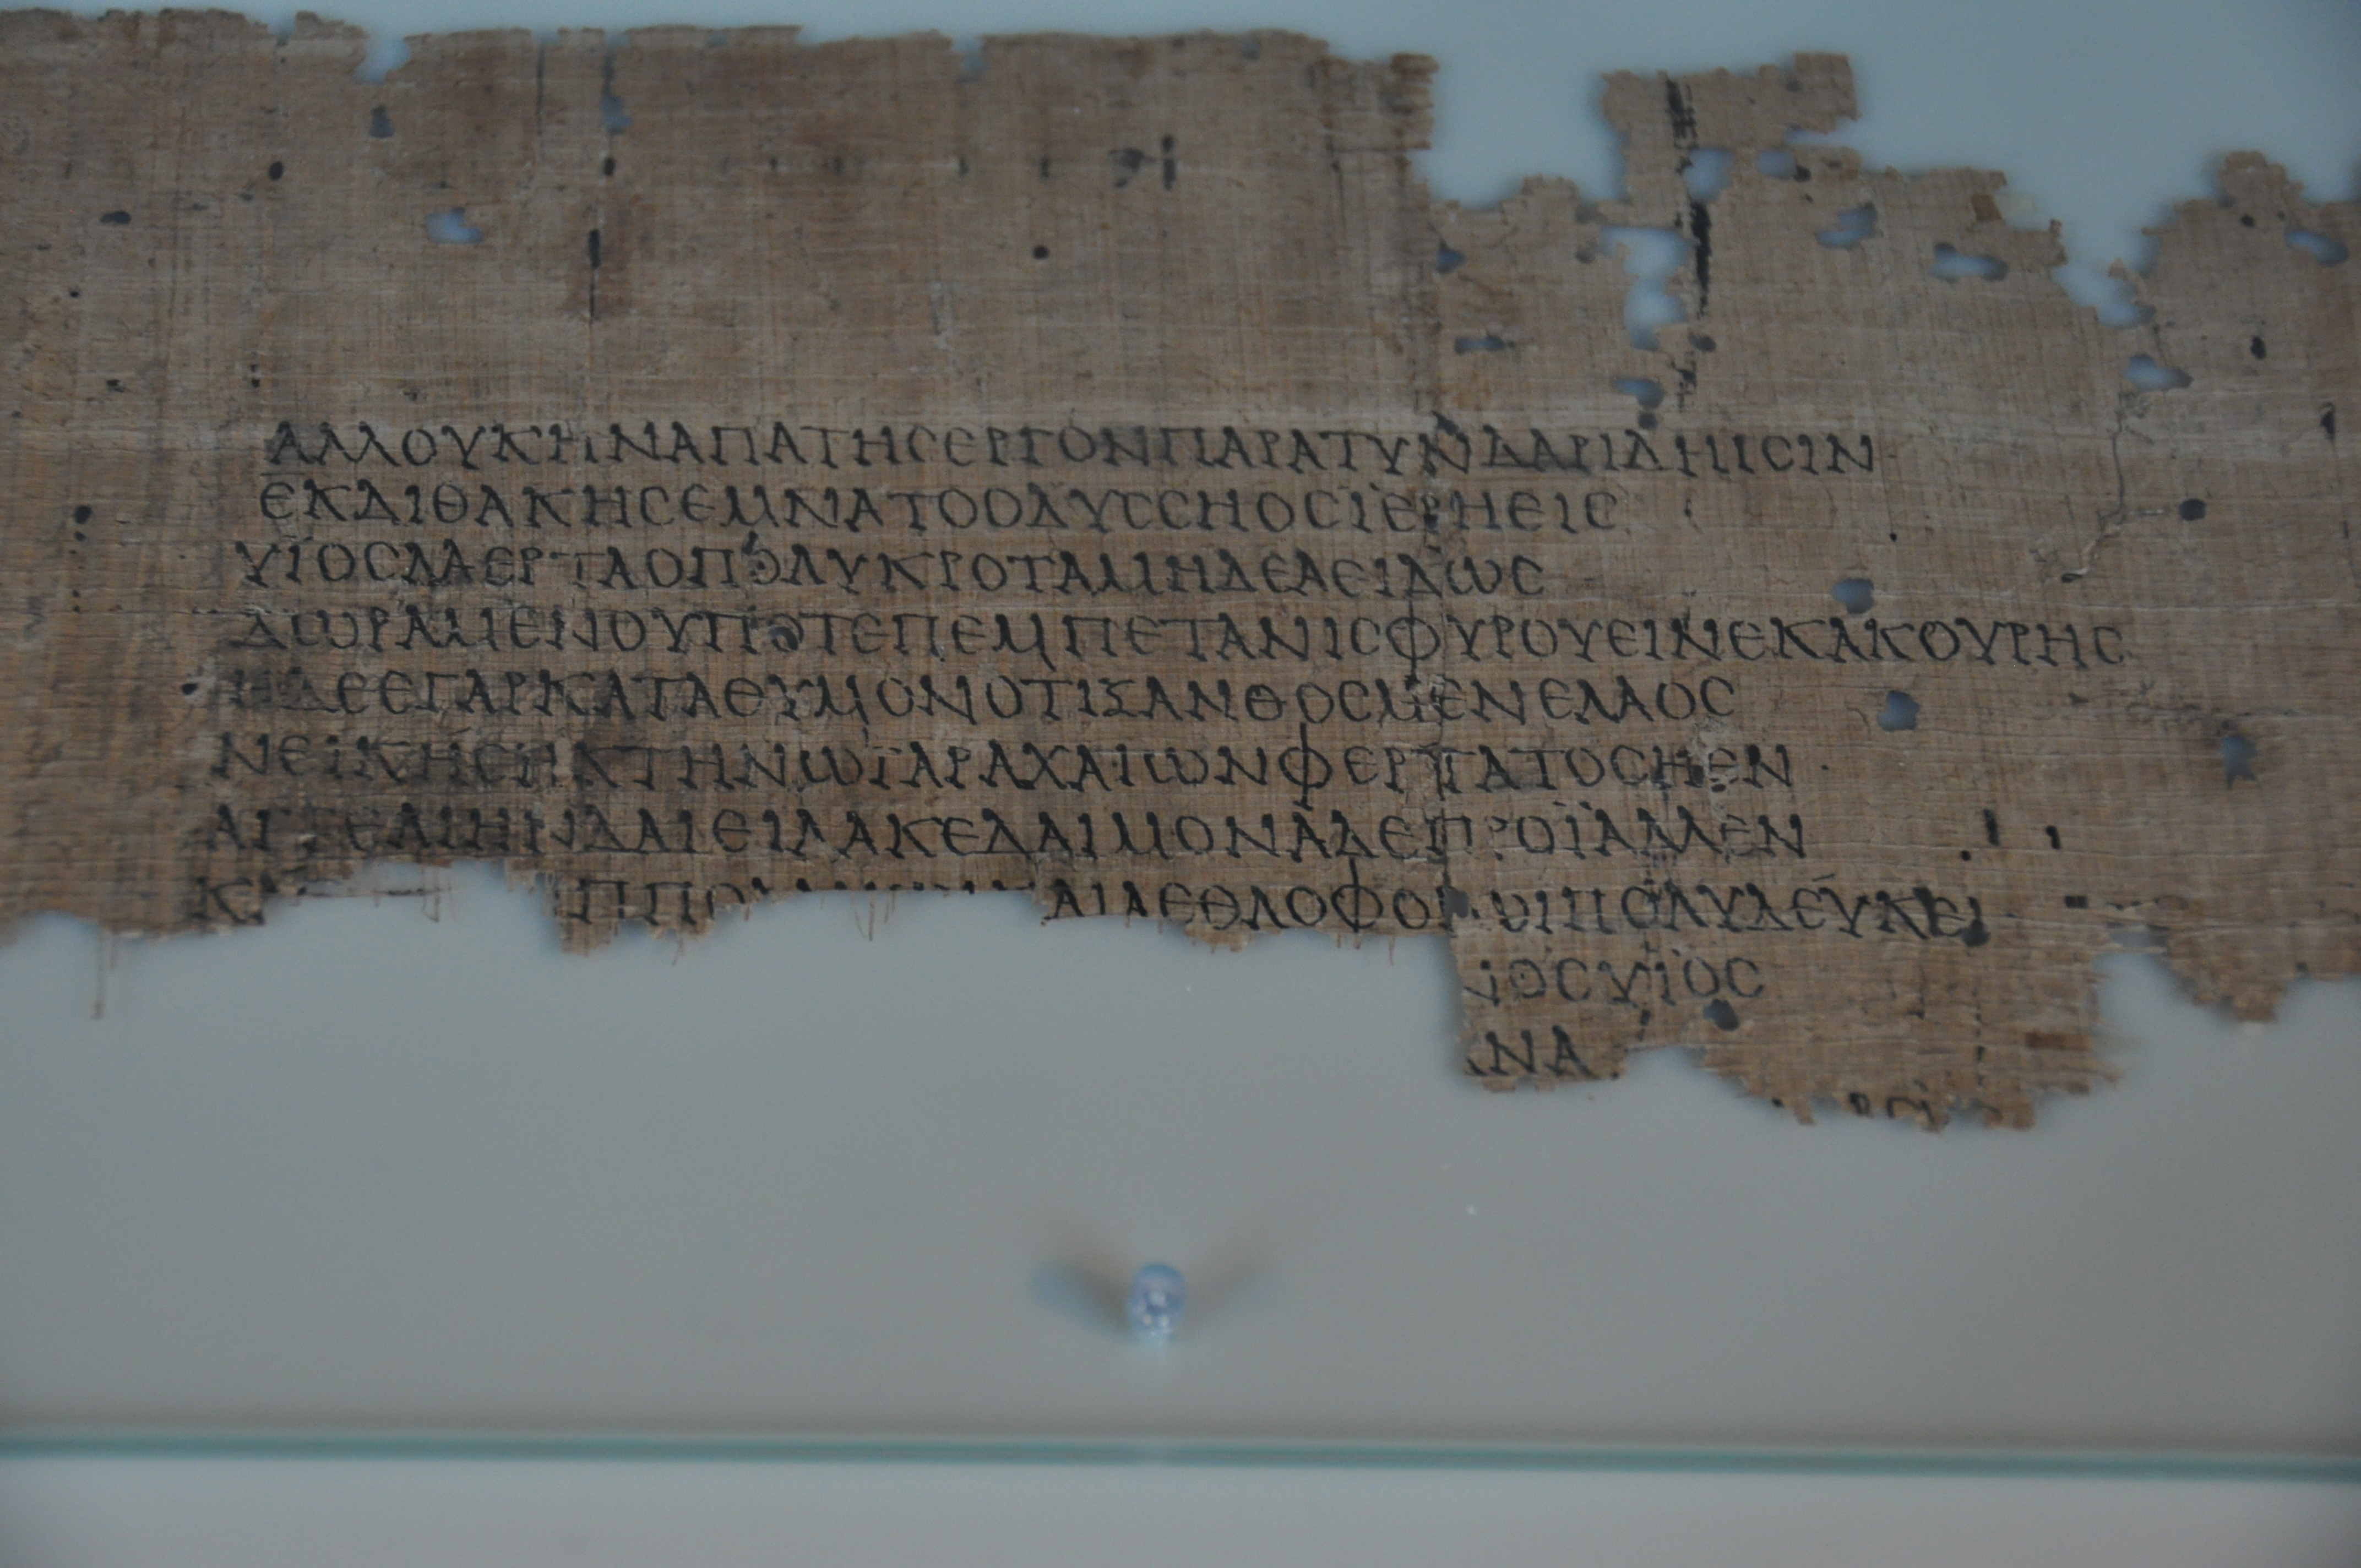 ΑΛΛΟΥΚΗΝΑΠΑΤΗϹΕΡΓΟΝΠΑΡΑΤΥΝΔΑΡΙΔΗΙϹΙΝ
ΕΚΔΙΘΑΚΗϹΕΜΝΑΤΟΟΔΥϹϹΗΟϹΪΕΡΗΕΙϹ
ΥΪΟϹΛΑΕΡΤΑΟΠΟΛΥΚΡΟΤΑΜΗΔΕΑΕΙΔΩϹ
ΔΩΡΑΜΕΝΟΥΠΟΤΕΠΕΜΠΕΤΑΝΙϹΦΥΡΟΥΕΙΝΕΚΑΚΟΥΡΗϹ
ΗΔΕΕΓΑΡΚΑΤΑΘΥΜΟΝΟΤΙΞΑΝΘΟϹΜΕΝΕΛΑΟϹ
ΝΕΙΚΗϹΕΙΚΤΗΝΩΪΑΡΑΧΑΙΩΝΦΕΡΤΑΤΟϹΗΕΝ
ΑΓΓΕΛΙΗΝΔΑΙΕΙΛΑΚΕΔΑΙΜΟΝΑΔΕΠΡΟΪΑΛΛΕΝ
ΚΑ ΠΠΟ ΑΙΑΕΘΛΟΦΟΡΩΙΠΟΛΥΔΕΥΚΕΙ
ΟϹΥΪΟϹ
ΝΑ